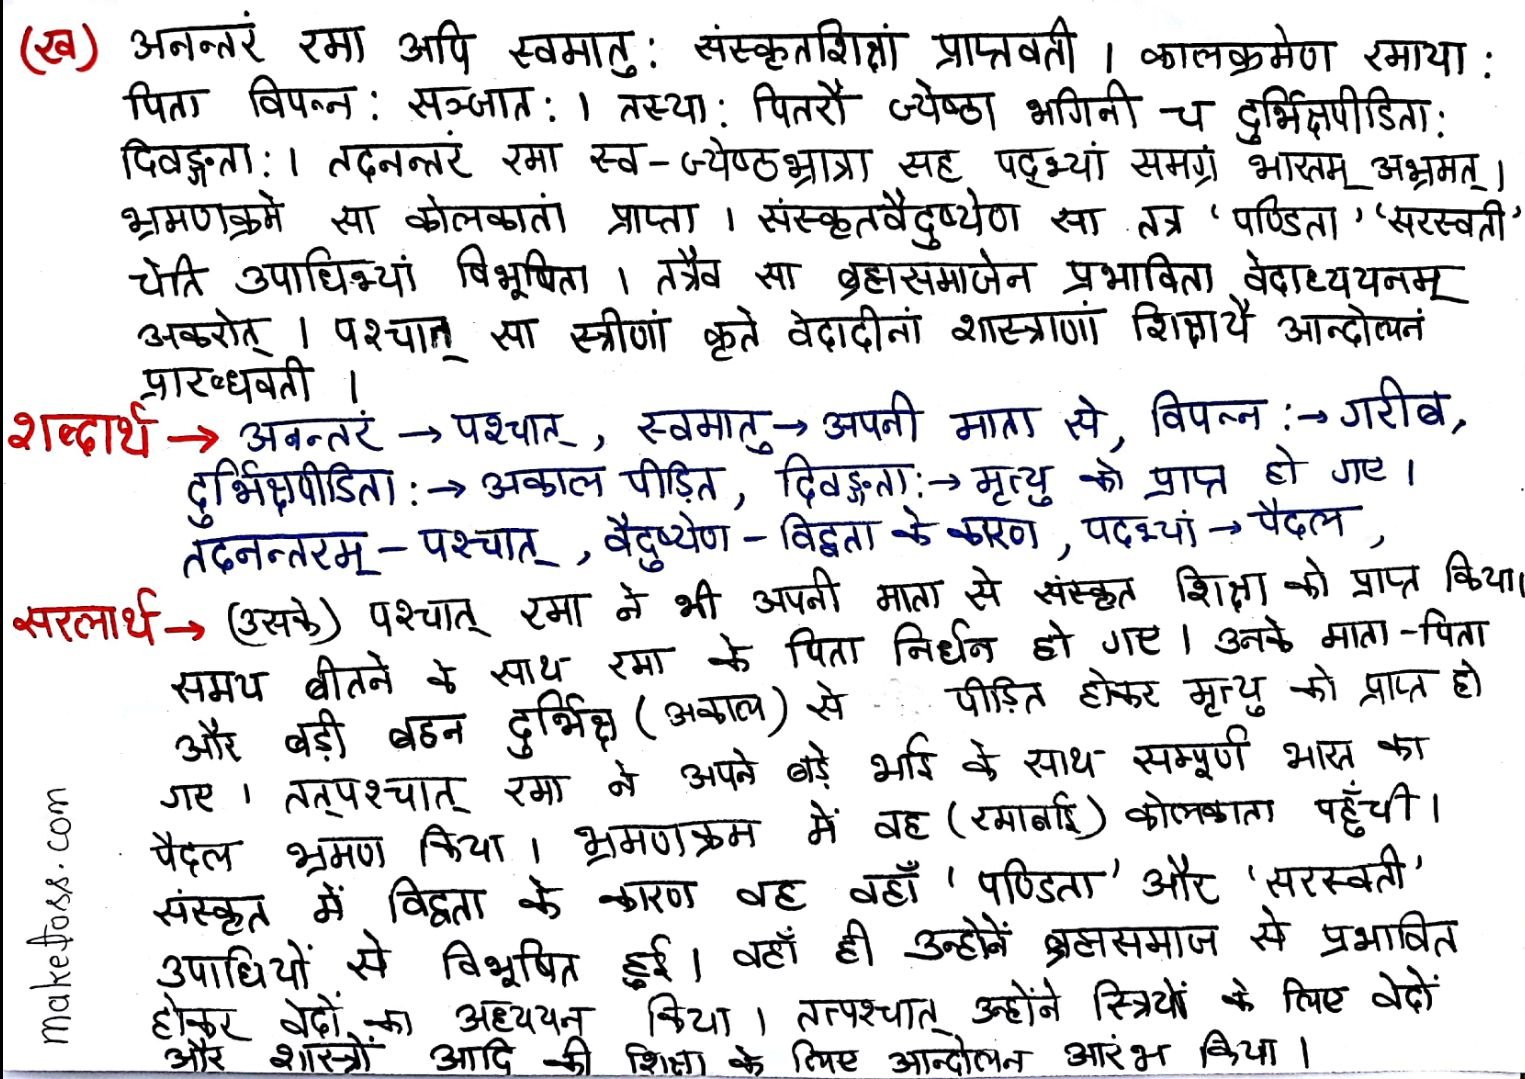 (ख) अनन्तरं रमा अपि स्वमातु: संस्कृतशिक्षां प्राप्तवती । कालक्रमेण रमाया:
पिता विपन्न: सञ्जात: । तस्या: पितरौ ज्येष्ठा भगिनी च दुर्भिक्षपीडिता:
दिवङ्गता: । तदनन्तरं रमा स्व-ज्येष्ठभ्रात्रा सह पद्भ्यां समग्रं भारतम् अभ्रमत् ।
भ्रमणक्रमे सा कोलकातां प्राप्ता । संस्कृतवैदुष्येण सा तत्र 'पण्डिता' 'सरस्वती'
चेति उपाधिभ्यां विभूषिता । तत्रैव सा ब्रह्मसमाजेन प्रभाविता वेदाध्ययनम्
अकरोत् । पश्चात् सा स्त्रीणां कृते वेदादीनां शास्त्राणां शिक्षायै आन्दोलनं
प्रारब्धवती ।
शब्दार्थ → अनन्तरं → पश्चात् , स्वमातु → अपनी माता से, विपन्न: → गरीब,
दुर्भिक्षपीडिता: → अकाल पीड़ित, दिवङ्गता: → मृत्यु को प्राप्त हो गए ।
तदनन्तरम् - पश्चात् , वैदुष्येण - विद्वता के कारण , पदभ्यां → पैदल ,
सरलार्थ → (उसके) पश्चात् रमा ने भी अपनी माता से संस्कृत शिक्षा को प्राप्त किया।
समय बीतने के साथ रमा के पिता निर्धन हो गए । उनके माता-पिता
और बड़ी बहन दुर्भिक्ष (अकाल) से पीड़ित होकर मृत्यु को प्राप्त हो
गए । तत्पश्चात् रमा ने अपने बड़े भाई के साथ सम्पूर्ण भारत का
पैदल भ्रमण किया । भ्रमणक्रम में वह (रमाबाई) कोलकाता पहुँची ।
संस्कृत में विद्वता के कारण वह वहाँ 'पण्डिता' और 'सरस्वती'
उपाधियों से विभूषित हुई । वहाँ ही उन्होनें ब्रह्मसमाज से प्रभावित
होकर वेदों का अध्ययन किया । तत्पश्चात् उन्होंने स्त्रियों के लिए वेदों
और शास्त्रों आदि की शिक्षा के लिए आन्दोलन आरंभ किया ।
maketoss.com